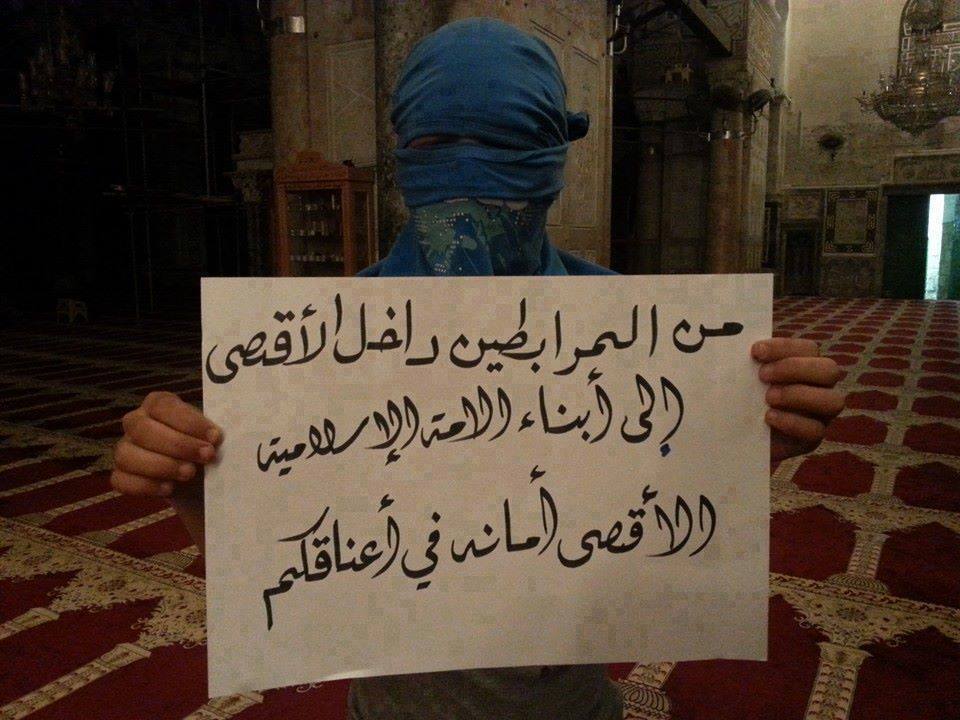 من المرابطين داخل الأقصى
إلى أبناء الامة الإسلامية
الأقصى أمانه في أعناقكم